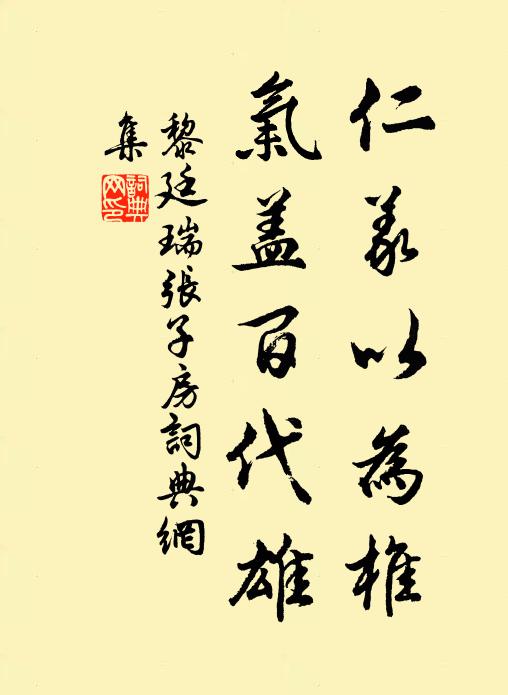 仁義以為椎
氣盖百代雄
黎廷瑞張子房詞典網
集
詞典
网印